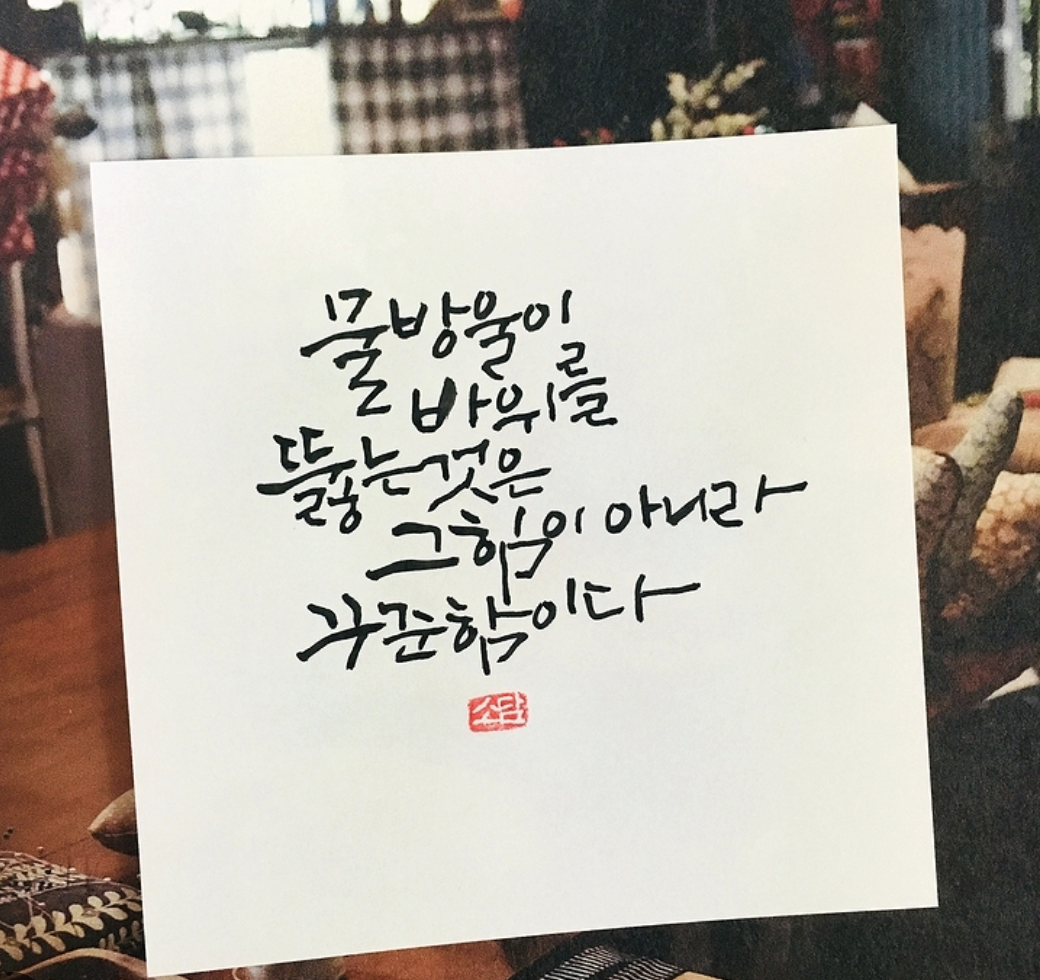 물방울이
바위를
뚫는것은
그힘이 아니라
꾸준함이다
소담